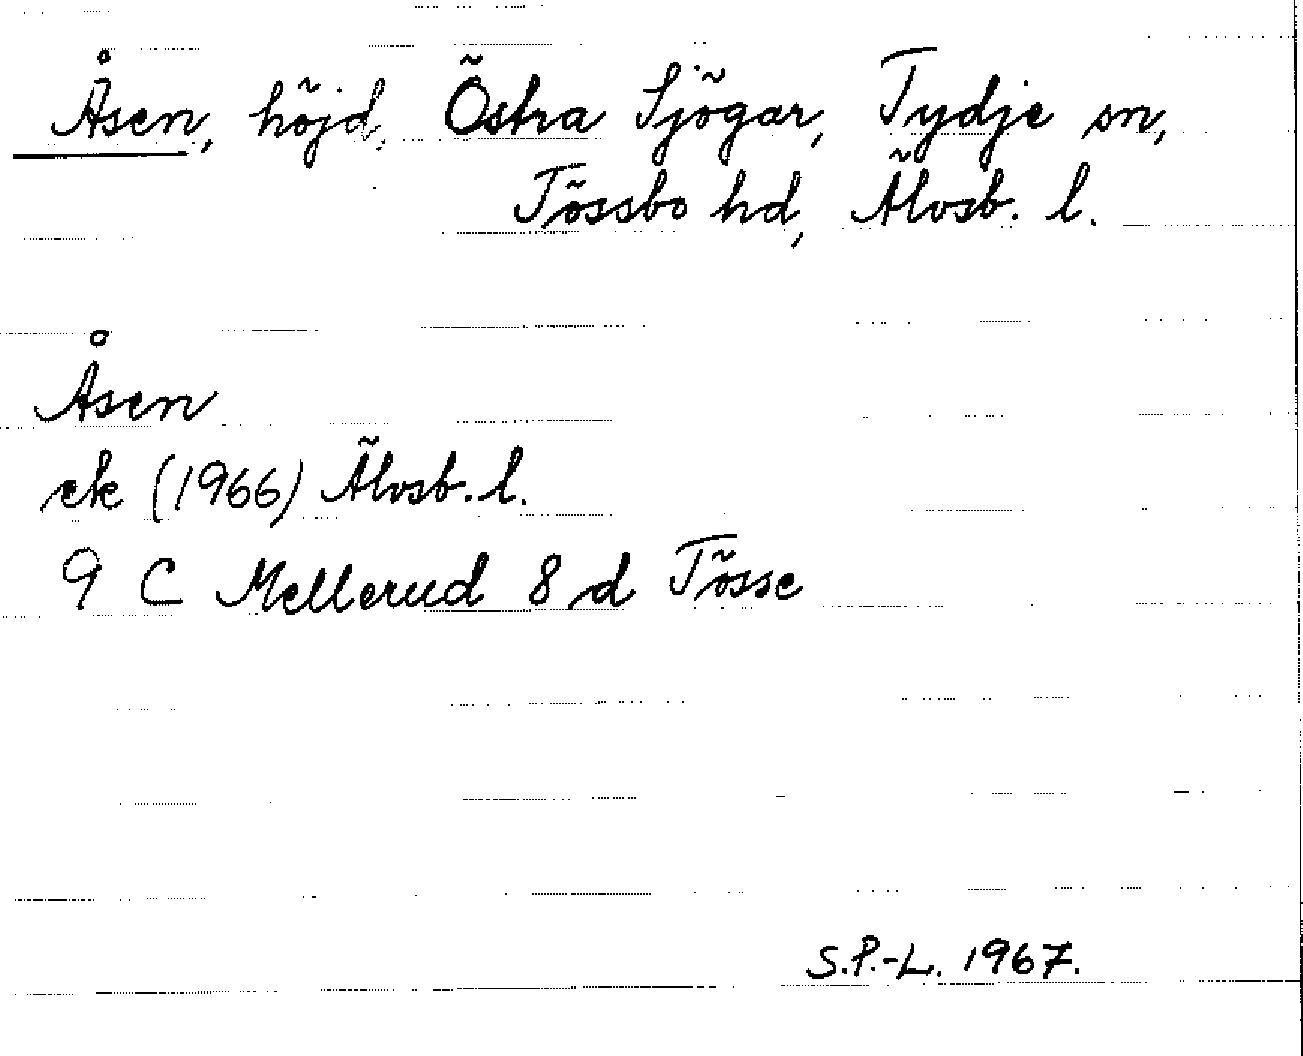 Åsen, höjd, Östra Sjögar, Tydje sn,
Tössbo hd, Älvsb. l.
Åsen
ek (1966) Älvsb. l.
9 C Mellerud 8 d Tösse
S.P.-L. 1967.